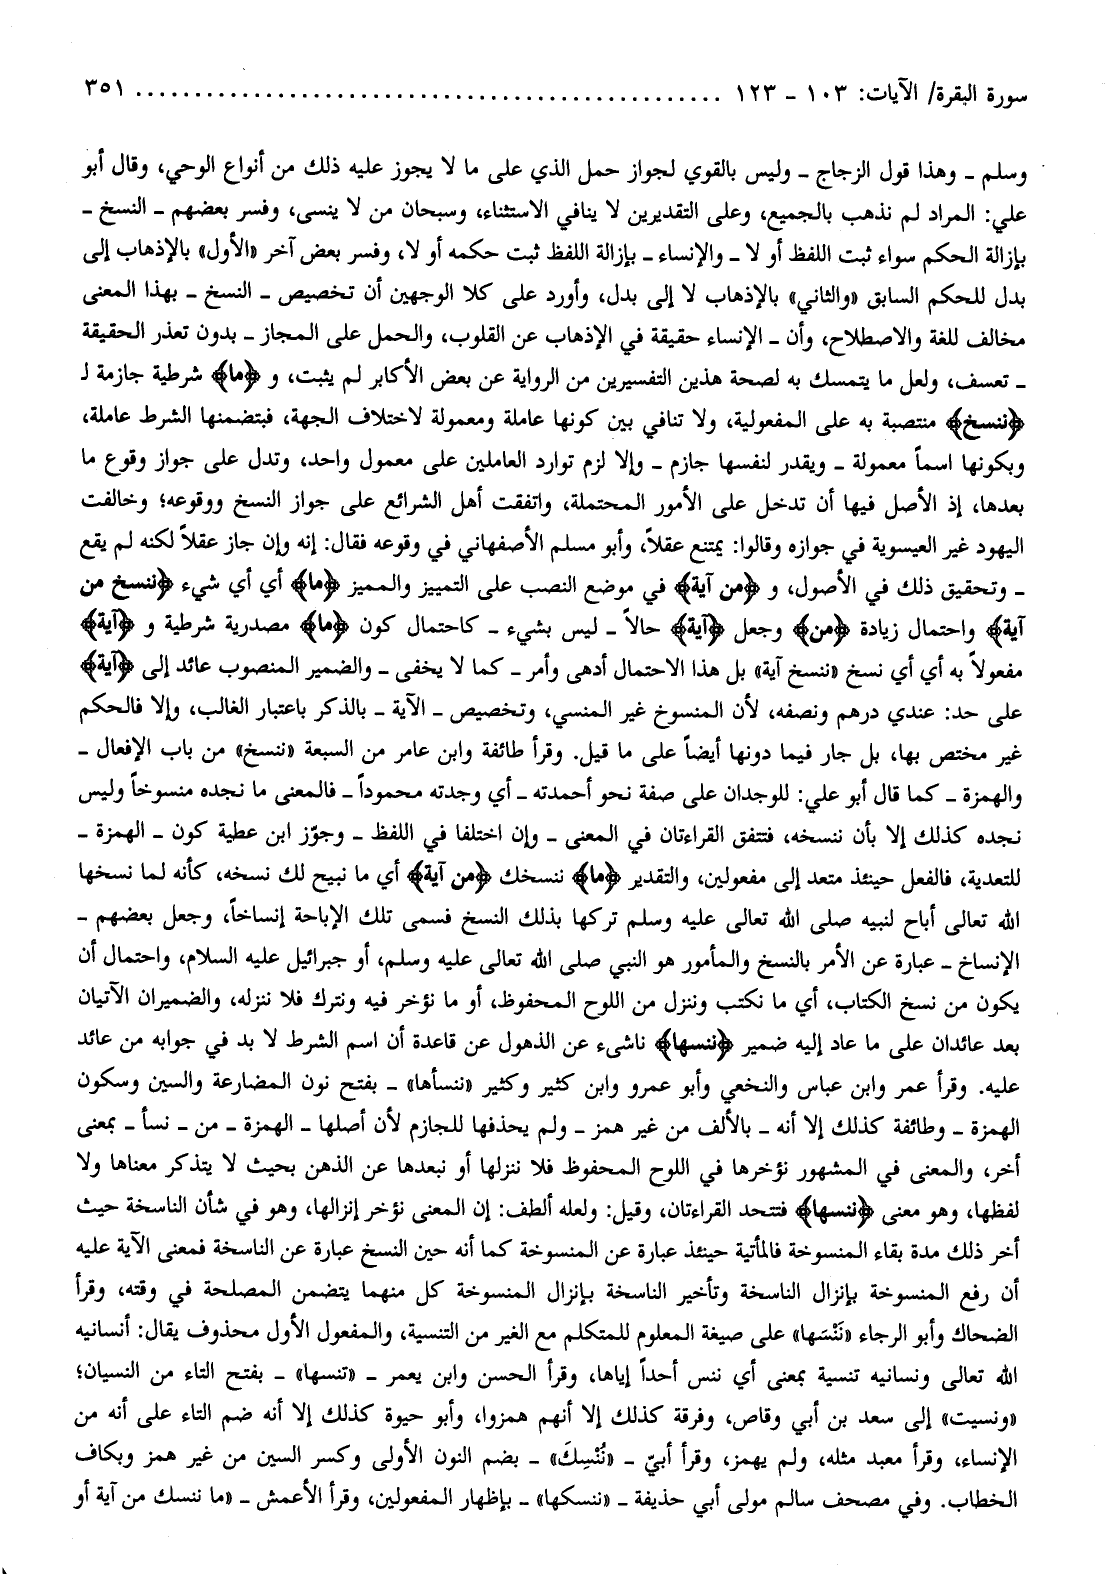 سورة البقرة/ الآيات: ١٠٣ ـ ١٢٣ .................................................. ٣٥١
وسلم ـ وهذا قول الزجاج ـ وليس بالقوي لجواز حمل الذي على ما لا يجوز عليه ذلك من أنواع الوحي، وقال أبو
علي: المراد لم نذهب بالجميع، وعلى التقديرين لا ينافي الاستثناء، وسبحان من لا ينسى، وفسر بعضهم ـ النسخ ـ
بإزالة الحكم سواء ثبت اللفظ أو لا ـ والإنساء ـ بإزالة اللفظ ثبت حكمه أو لا، وفسر بعض آخر «الأول» بالإذهاب إلى
بدل للحكم السابق «والثاني» بالإذهاب لا إلى بدل، وأورد على كلا الوجهين أن تخصيص ـ النسخ ـ بهذا المعنى
مخالف للغة والاصطلاح، وأن ـ الإنساء حقيقة في الإذهاب عن القلوب، والحمل على المجاز ـ بدون تعذر الحقيقة
ـ تعسف، ولعل ما يتمسك به لصحة هذين التفسيرين من الرواية عن بعض الأكابر لم يثبت، و ﴿ما﴾ شرطية جازمة لـ
﴿ننسخ﴾ منتصبة به على المفعولية، ولا تنافي بين كونها عاملة ومعمولة لاختلاف الجهة، فبتضمنها الشرط عاملة،
وبكونها اسماً معمولة ـ ويقدر لنفسها جازم ـ وإلا لزم توارد العاملين على معمول واحد، وتدل على جواز وقوع ما
بعدها، إذ الأصل فيها أن تدخل على الأمور المحتملة، واتفقت أهل الشرائع على جواز النسخ ووقوعه؛ وخالفت
اليهود غير العيسوية في جوازه وقالوا: يمتنع عقلاً، وأبو مسلم الأصفهاني في وقوعه فقال: إنه وإن جاز عقلاً لكنه لم يقع
ـ وتحقيق ذلك في الأصول، و ﴿من آية﴾ في موضع النصب على التمييز والمميز ﴿ما﴾ أي أي شيء ﴿ننسخ من
آية﴾ واحتمال زيادة ﴿من﴾ وجعل ﴿آية﴾ حالاً ـ ليس بشيء ـ كاحتمال كون ﴿ما﴾ مصدرية شرطية و ﴿آية﴾
مفعولاً به أي أي نسخ «ننسخ آية» بل هذا الاحتمال أدهى وأمر ـ كما لا يخفى ـ والضمير المنصوب عائد إلى ﴿آية﴾
على حد: عندي درهم ونصفه، لأن المنسوخ غير المنسي، وتخصيص ـ الآية ـ بالذكر باعتبار الغالب، وإلا فالحكم
غير مختص بها، بل جار فيما دونها أيضاً على ما قيل. وقرأ طائفة وابن عامر من السبعة «ننسخ» من باب الإفعال ـ
والهمزة ـ كما قال أبو علي: للوجدان على صفة نحو أحمدته ـ أي وجدته محموداً ـ فالمعنى ما نجده منسوخاً وليس
نجده كذلك إلا بأن ننسخه، فتتفق القراءتان في المعنى ـ وإن اختلفا في اللفظ ـ وجوّز ابن عطية كون ـ الهمزة ـ
للتعدية، فالفعل حينئذ متعد إلى مفعولين، والتقدير ﴿ما﴾ ننسخك ﴿من آية﴾ أي ما نبيح لك نسخه، كأنه لما نسخها
الله تعالى أباح لنبيه صلى الله تعالى عليه وسلم تركها بذلك النسخ فسمى تلك الإباحة إنساخاً، وجعل بعضهم ـ
الإنساخ ـ عبارة عن الأمر بالنسخ والمأمور هو النبي صلى الله تعالى عليه وسلم، أو جبرائيل عليه السلام، واحتمال أن
يكون من نسخ الكتاب، أي ما نكتب وننزل من اللوح المحفوظ، أو ما نؤخر فيه ونترك فلا ننزله، والضميران الآتيان
بعد عائدان على ما عاد إليه ضمير ﴿ننسها﴾ ناشىء عن الذهول عن قاعدة أن اسم الشرط لا بد في جوابه من عائد
عليه. وقرأ عمر وابن عباس والنخعي وأبو عمرو وابن كثير وكثير «ننسأها» ـ بفتح نون المضارعة والسين وسكون
الهمزة ـ وطائفة كذلك إلا أنه ـ بالألف من غير همز ـ ولم يحذفها للجازم لأن أصلها ـ الهمزة ـ من ـ نسأ ـ بمعنى
أخر، والمعنى في المشهور نؤخرها في اللوح المحفوظ فلا ننزلها أو نبعدها عن الذهن بحيث لا يتذكر معناها ولا
لفظها، وهو معنى ﴿ننسها﴾ فتتحد القراءتان، وقيل: ولعله ألطف: إن المعنى نؤخر إنزالها، وهو في شأن الناسخة حيث
أخر ذلك مدة بقاء المنسوخة فالمأتية حينئذ عبارة عن المنسوخة كما أنه حين النسخ عبارة عن الناسخة فمعنى الآية عليه
أن رفع المنسوخة بإنزال الناسخة وتأخير الناسخة بإنزال المنسوخة كل منهما يتضمن المصلحة في وقته، وقرأ
الضحاك وأبو الرجاء «نَنْسَها» على صيغة المعلوم للمتكلم مع الغير من التنسية، والمفعول الأول محذوف يقال: أنسانيه
الله تعالى ونسانيه تنسية بمعنى أي ننس أحداً إياها، وقرأ الحسن وابن يعمر ـ «تنسها» ـ بفتح التاء من النسيان؛
«ونسيت» إلى سعد بن أبي وقاص، وفرقة كذلك إلا أنهم همزوا، وأبو حيوة كذلك إلا أنه ضم التاء على أنه من
الإنساء، وقرأ معبد مثله، ولم يهمز، وقرأ أبيّ ـ «نُنْسِكَ» ـ بضم النون الأولى وكسر السين من غير همز وبكاف
الخطاب. وفي مصحف سالم مولى أبي حذيفة ـ «ننسكها» ـ بإظهار المفعولين، وقرأ الأعمش ـ «ما ننسك من آية أو